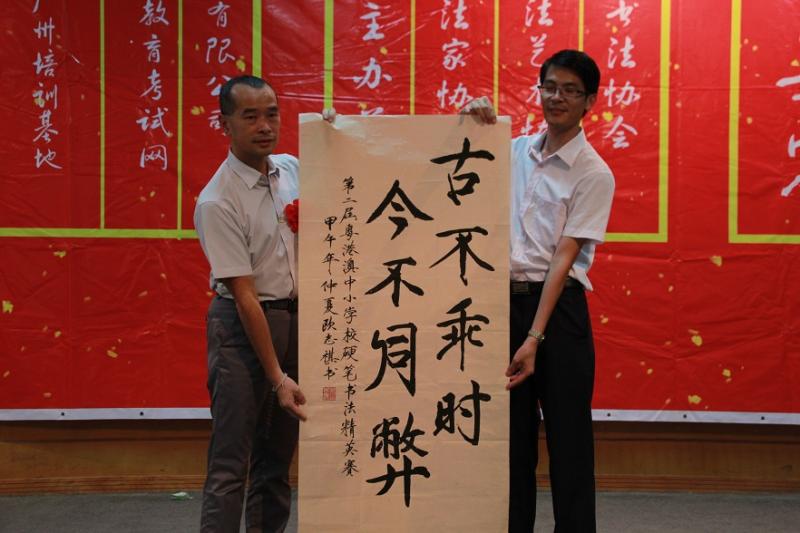 书法协会
法艺术
法家协
主办
有限公司
教育考试网
州培训基地
古不乖时
今不同弊
第二届粤港澳中小学校硬笔书法精英赛
甲午年仲夏欧志祺书